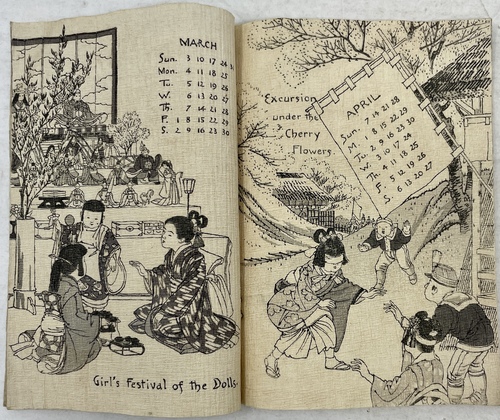 MARCH
Sun. 3 10 17 24 31
Mon. 4 11 18 25
Tu. 5 12 19 26
W. 6 13 20 27
Th. 7 14 21 28
F. 1 8 15 22 29
S. 2 9 16 23 30
Girl's Festival of the Dolls.
Excursion
under the
Cherry
Flowers.
APRIL
Sun. 7 14 21 28
M. 1 8 15 22 29
Tu. 2 9 16 23 30
W. 3 10 17 24
Th. 4 11 18 25
F. 5 12 19 26
S. 6 13 20 27